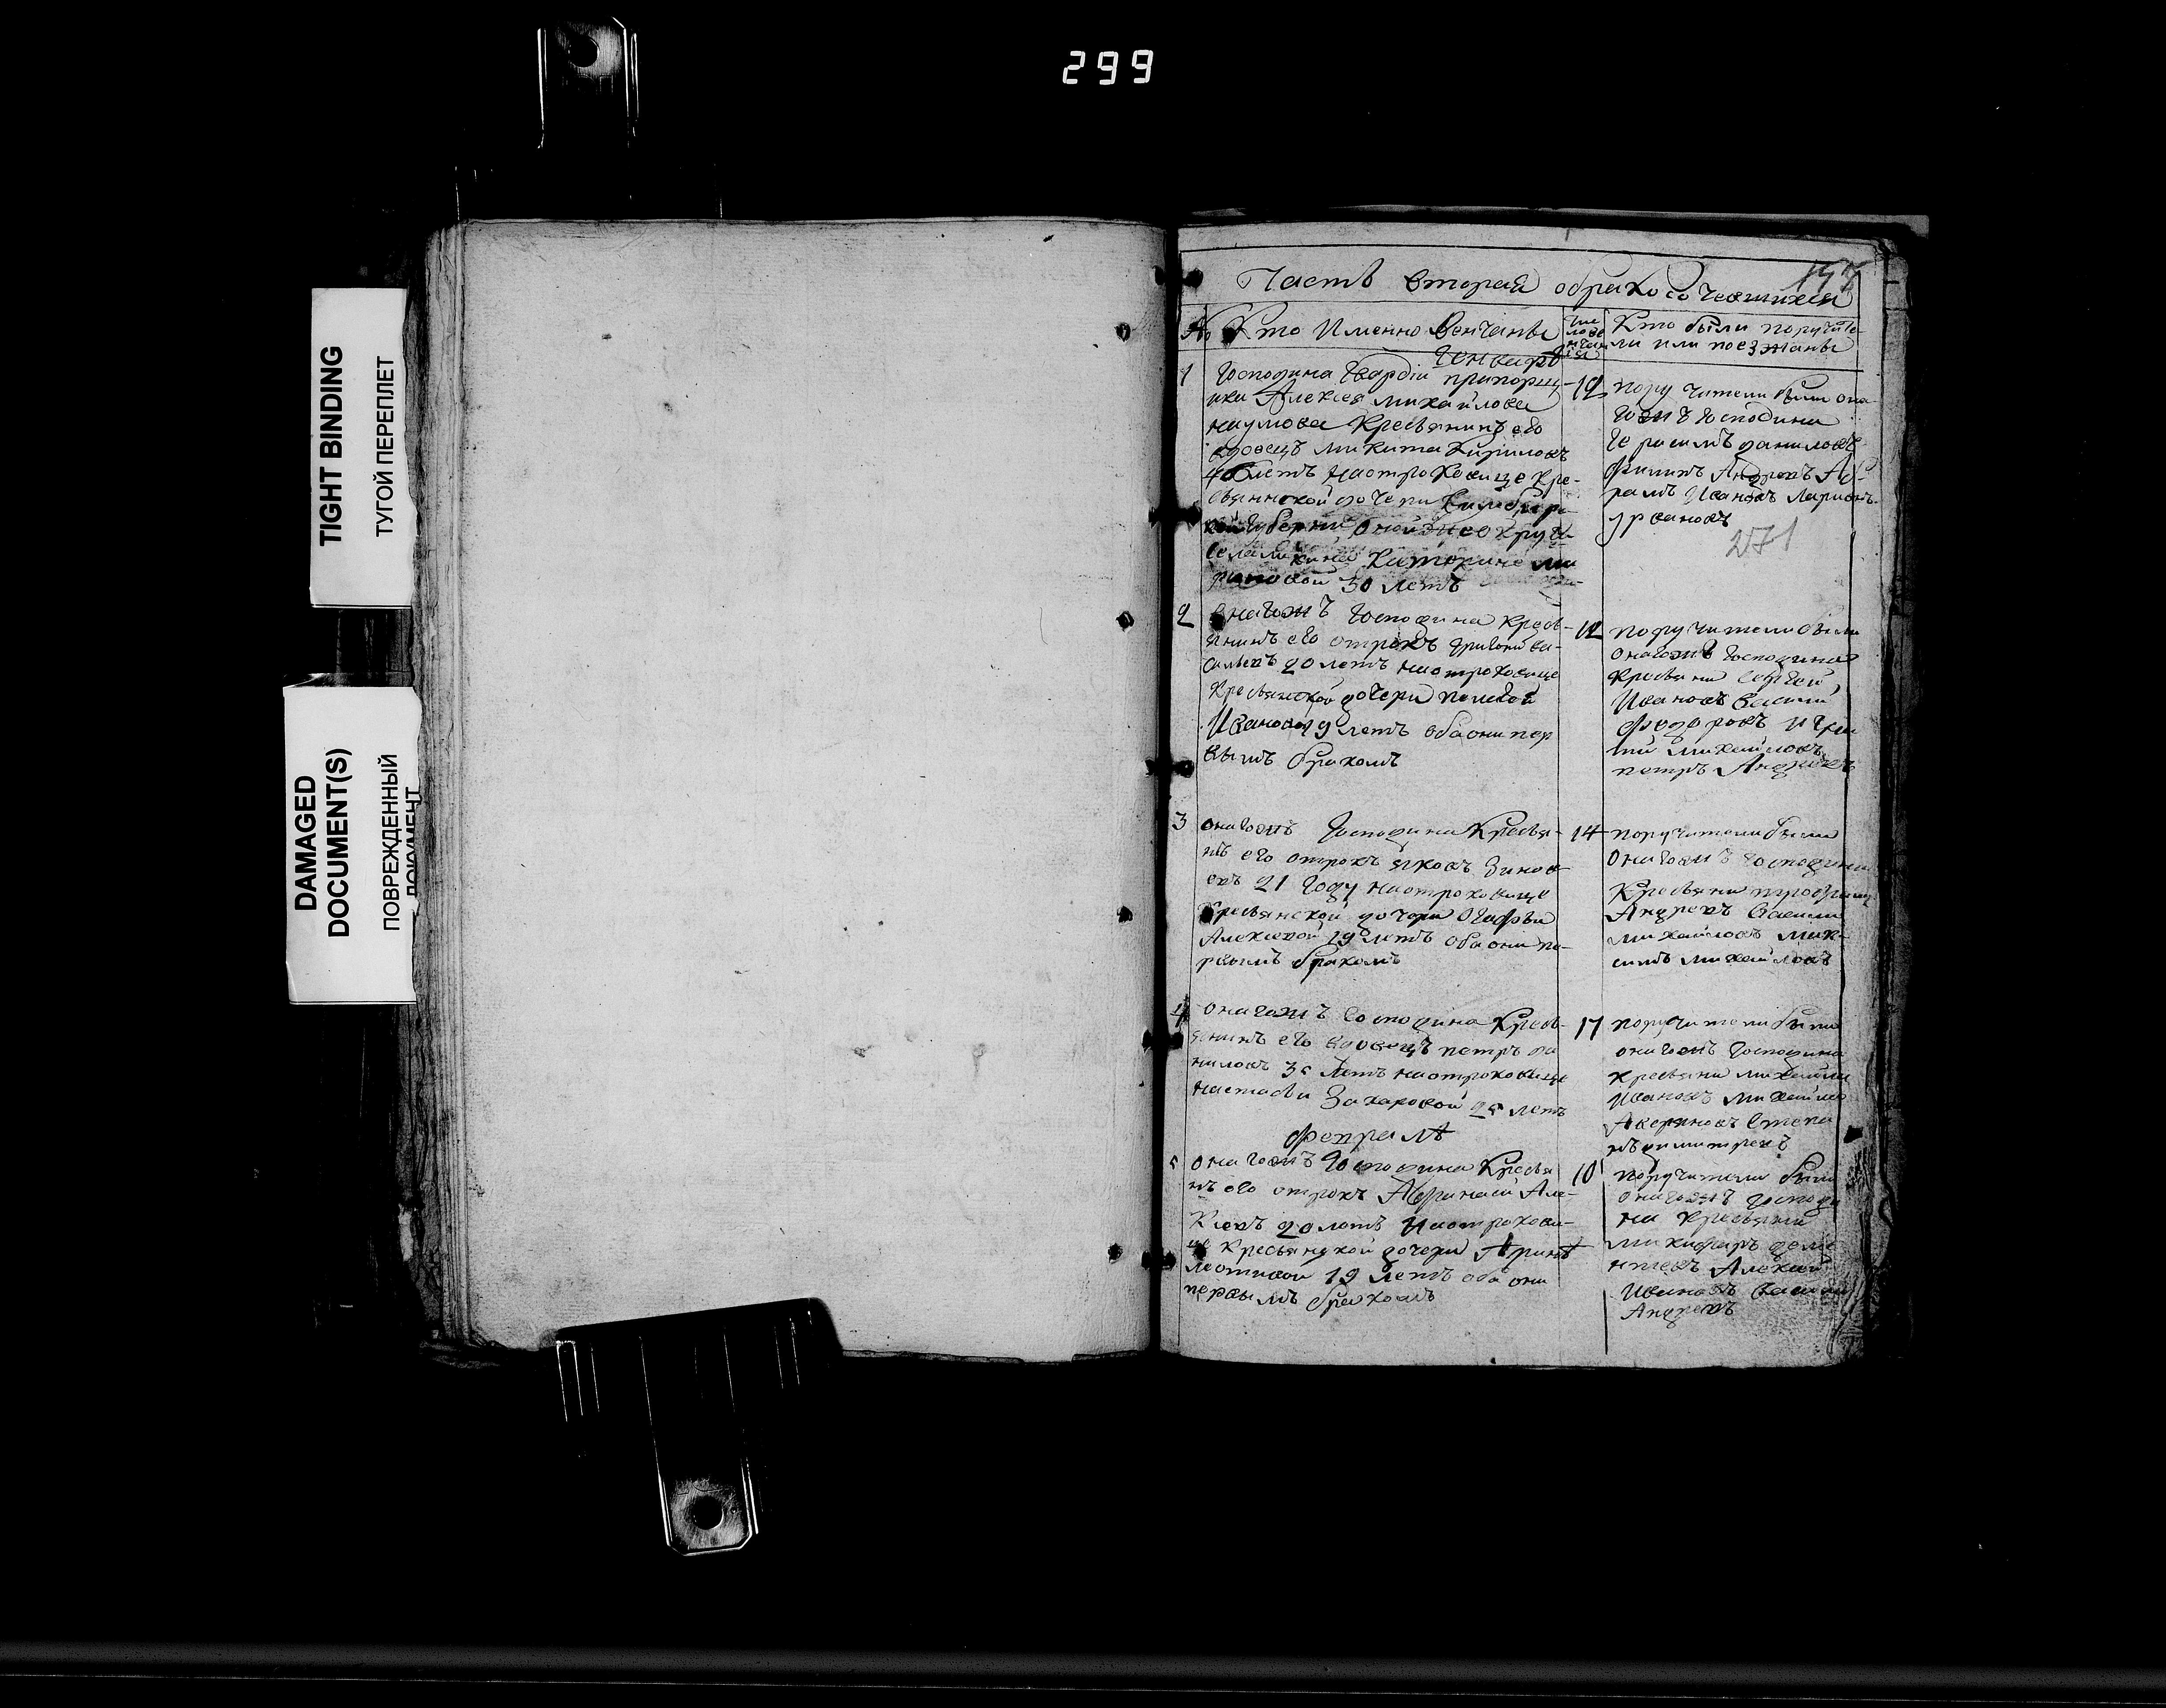 299
TIGHT BINDING
ТУГОЙ ПЕРЕПЛЕТ
DAMAGED
DOCUMENT(S)
ПОВРЕЖДЕННЫЙ
ДОКУМЕНТ
Часть вторая о бракосочевшихся
№ Кто Именно Венчаны
Генварь
Кто были поручите-
ли или поезжаны
271
1
Господина Гвардіи прапорщ-
ика Алексея михайлова
наумова Кресьянинъ его
вдовецъ микита Кириловъ
летъ наотроковице Кре-
сьянской дочери
губернии оной
Катерине
30 летъ
12
поручители были она
гожъ Господина
Герасимъ даниловъ
филипъ Андревъ Аб-
рамъ Ивановъ Ларионъ
2
онагожъ Господина Кресь-
янинъ его отрокъ григории ва-
сильевъ 20 летъ наотроковице
Кресьянской дочери
Ивановой 19 летъ оба они пер
вымъ бракомъ
12
поручители были
онагожъ Господина
Кресьяни Сергей
Ивановъ Василий
Федоровъ
михайловъ
петръ Андревъ
3
онагожъ Господина Кресья-
нъ его отрокъ яковъ Зинов-
евъ 21 Году наотроковице
Кресьянской дочери Огафьи
Алексевой 19 летъ оба они пе-
рвымъ бракомъ
14
поручители были
Онагожъ господина
Кресьяни
Андревъ Василии
михайловъ мак-
симъ михайловъ
4
онагожъ Господина Кресь-
янинъ его вдовецъ петръ да
ниловъ 35 летъ наотроковице
настасьи Захаровой 25 летъ
17
поручители были
онагожъ Господина
Кресьяни михайла
Ивановъ михайла
Степа
нъ димитревъ
Февраля
5
онагожъ Господина Кресья
нъ его отрокъ Афанасей Але-
ксевъ 20 летъ наотрокови-
це Кресьянской дочери Аринѣ
19 летъ оба они
первымъ бракомъ
10
поручители были
онагожъ Господи
на Кресьяни
микифаръ
Алексей
Ивановъ Василий
Андревъ